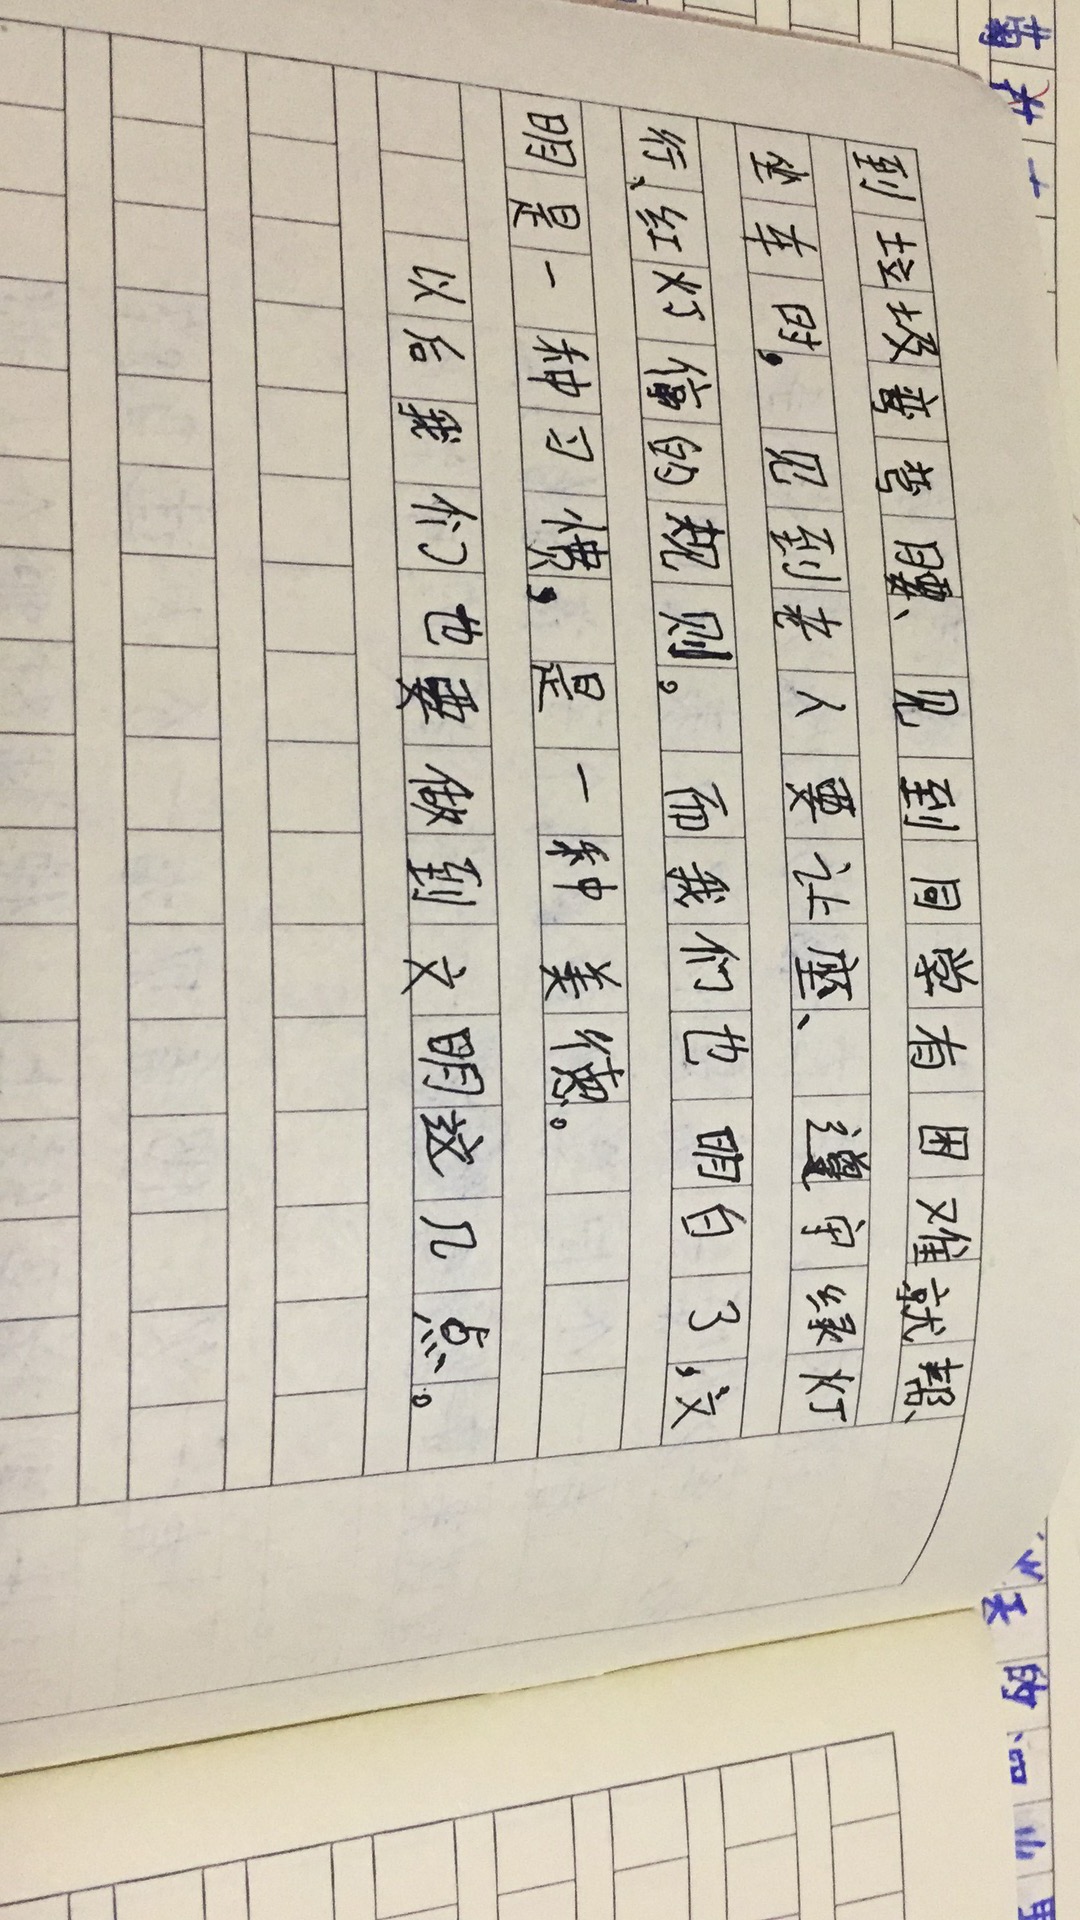 到垃圾弯弯腰、见到同学有困难就帮、
坐车时,见到老人要让座、遵守绿灯
行、红灯停的规则。而我们也明白了,文
明是一种习惯,是一种美德。
以后我们也要做到文明这几点。